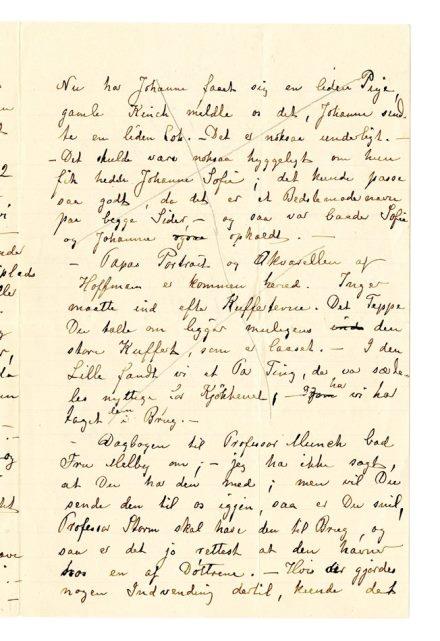 Nu har Johanne faaet sig en liden Pige,
gamle Kinck meldte os det, Johanne send-
te en liden Lok. - Det er noksaa underligt. -
- Det skulde være noksaa hyggeligt om hun
fik hedde Johanne Sofie; det kunde passe
saa godt, da det er et Bedstemodernavn
paa begge Sider - og saa var baade Sofie
og Johanne opkaldt. -
- Papas Portræt og Akvarellen af
Hoffmann er kommen hered. Inger
maatte ind efter Kufferterne. Det Teppe
Du talte om ligger muligens i den
store Kuffert, som er laaset. - I den
Lille fandt vi et Par Ting, der var særde-
les nyttige for Kjøkkenet, ha vi har
taget dem i Brug. -
- Dagbogen til Professor Munch bad
Fru Melby om; - jeg har ikke sagt,
at Du har den med; men vil Du
sende den til os igjen, saa er Du snil,
Professor Storm skal have den til Brug, og
saa er det jo rettest at den havner
hos en af Døttrene. - Hvis der gjordes
nogen Indvending dertil, kunde det